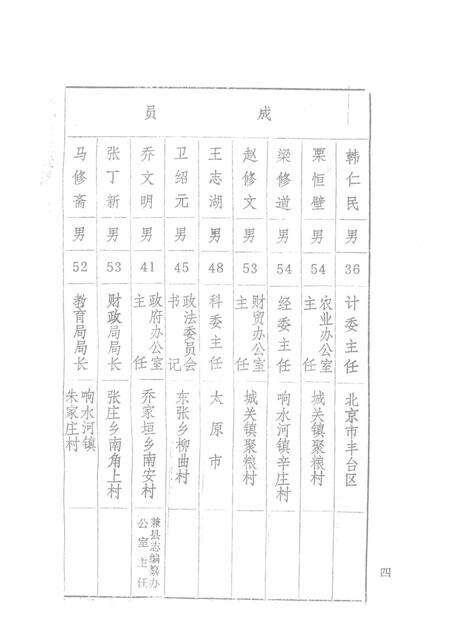 成员
韩仁民 男 36 计委主任 北京市丰台区
栗恒壁 男 54 农业办公室主任 城关镇聚粮村
梁修道 男 54 经委主任 响水河镇辛庄村
赵修文 男 53 财贸办公室主任 城关镇聚粮村
王志湖 男 48 科委主任 太原市
卫绍元 男 45 政法委员会书记 东张乡柳曲村
乔文明 男 41 政府办公室主任 乔家垣乡南安村 兼县志编纂办公室主任
张丁新 男 53 财政局局长 张庄乡南角上村
马修斋 男 52 教育局局长 响水河镇朱家庄村
四